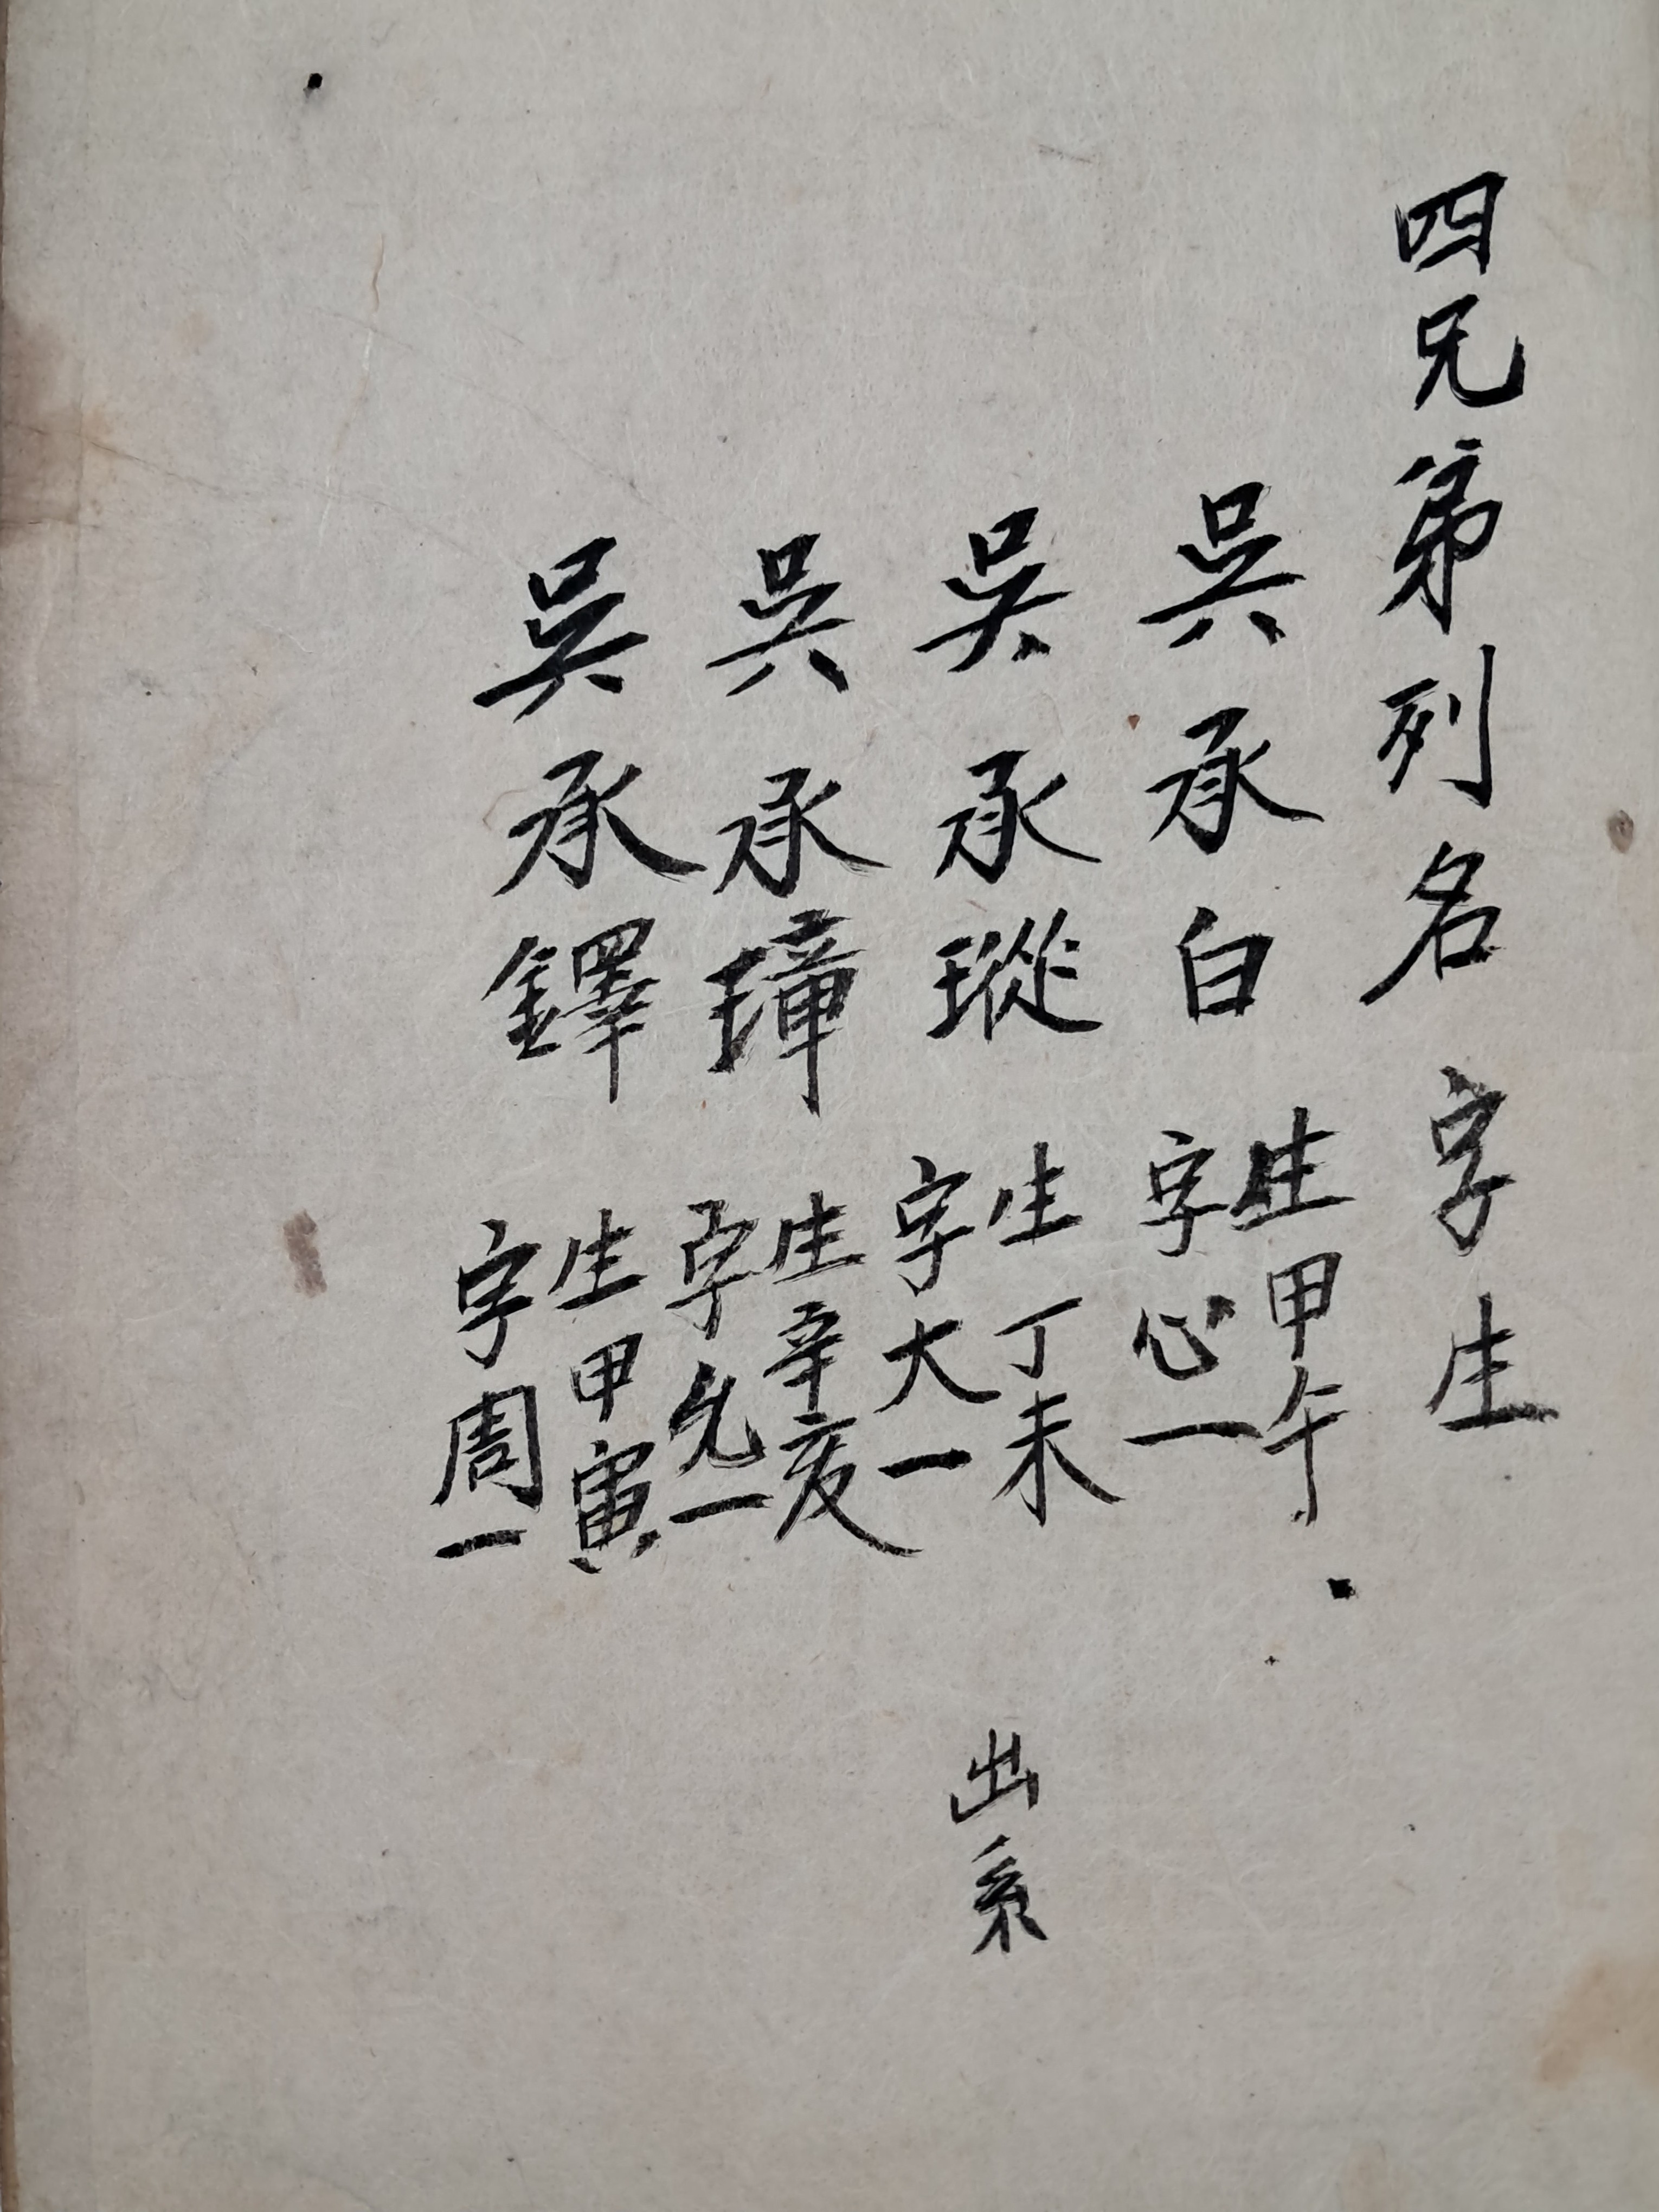 四兄弟列名 字生
吳承白 生甲午
字心一
吳承瑽 生丁未
字大一
出系
吳承璋 生辛亥
字允一
吳承鐸 生甲寅
字周一